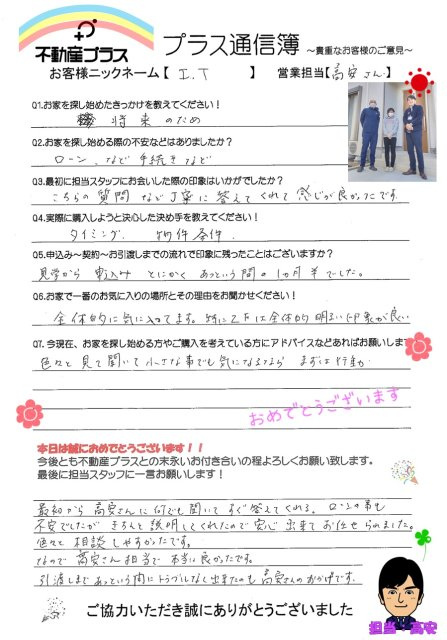 不動産プラス
プラス通信簿 ～貴重なお客様のご意見～
お客様ニックネーム【 I.T 】 営業担当【高安さん】
Q1.お家を探し始めたきっかけを教えてください！
将来のため
Q2.お家を探し始める際の不安などはありましたか？
ローン、など手続きなど
Q3.最初に担当スタッフにお会いした際の印象はいかがでしたか？
こちらの質問など丁寧に答えてくれて感じが良かったです
Q4.実際に購入しようと決心した決め手を教えてください！
タイミング、物件条件、
Q5.申込み～契約～お引渡しまでの流れで印象に残ったことはございますか？
見学から申込みとにかくあっという間の1カ月半でした。
Q6.お家で一番のお気に入りの場所とその理由をお聞かせください！
全体的に気に入ってます。特に2Fは全体的明るい印象が良い
Q7.今現在、お家を探し始める方やご購入を考えている方にアドバイスなどあればお願いします
色々と見て聞いて小さな事でも気になるなら まずは行動
おめでとうございます
本日は誠におめでとうございます！！
今後とも不動産プラスとの末永いお付き合いの程よろしくお願い致します。
最後に担当スタッフに一言お願いします！
最初から高安さんに何でも聞いてすぐ答えてくれる。ローンの事も
不安でしたがきちんと説明してくれたので安心出来てお任せられました。
色々と相談しやすかったです。
なので高安さん担当で本当に良かったです。
引渡しまであっという間にトラブルなく出来たのも高安さんのおかげです。
ご協力いただき誠にありがとうございました
担当 高安